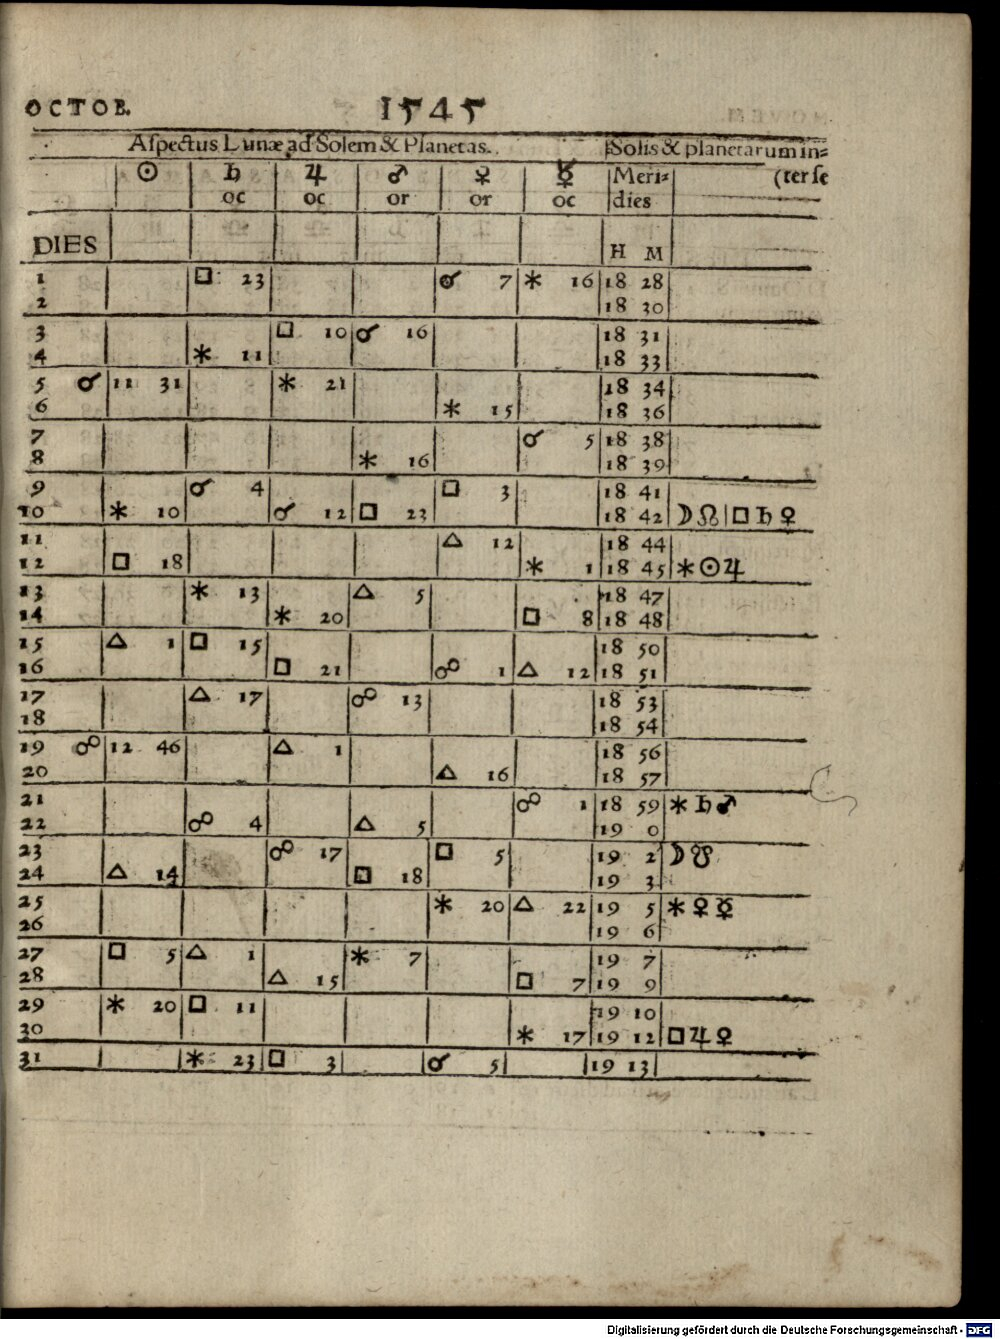 OCTOB. 1545
Aſpectus Lunæ ad Solem & Planetas. Solis & planetarum in=
☉ ♄ ♃ ♂ ♀ ☿ Meri= (ter ſe
oc oc or or oc dies
DIES H M
1 □ 23 ☌ 7 ⚹ 16 18 28
2 18 30
3 □ 10 ☌ 16 18 31
4 ⚹ 11 18 33
5 ☌ 11 31 ⚹ 21 18 34
6 ⚹ 15 18 36
7 ☌ 5 18 38
8 ⚹ 16 18 39
9 ☌ 4 □ 3 18 41
10 ⚹ 10 ☌ 12 □ 23 18 42 ☽ ☊ | □ ♄ ♀
11 △ 12 18 44
12 □ 18 ⚹ 1 18 45 ⚹ ☉ ♃
13 ⚹ 13 △ 5 18 47
14 ⚹ 20 □ 8 18 48
15 △ 1 □ 15 18 50
16 □ 21 ☍ 1 △ 12 18 51
17 △ 17 ☍ 13 18 53
18 18 54
19 ☍ 12 46 △ 1 18 56
20 △ 16 18 57
21 ☍ 1 18 59 ⚹ ♄ ♂
22 ☍ 4 △ 5 19 0
23 ☍ 17 □ 5 19 2 ☽ ☋
24 △ 14 □ 18 19 3
25 ⚹ 20 △ 22 19 5 ⚹ ♀ ☿
26 19 6
27 □ 5 △ 1 ⚹ 7 19 7
28 △ 15 □ 7 19 9
29 ⚹ 20 □ 11 19 10
30 ⚹ 17 19 12 □ ♃ ♀
31 ⚹ 23 □ 3 ☌ 5 19 13
Digitalisierung gefördert durch die Deutsche Forschungsgemeinschaft - DFG